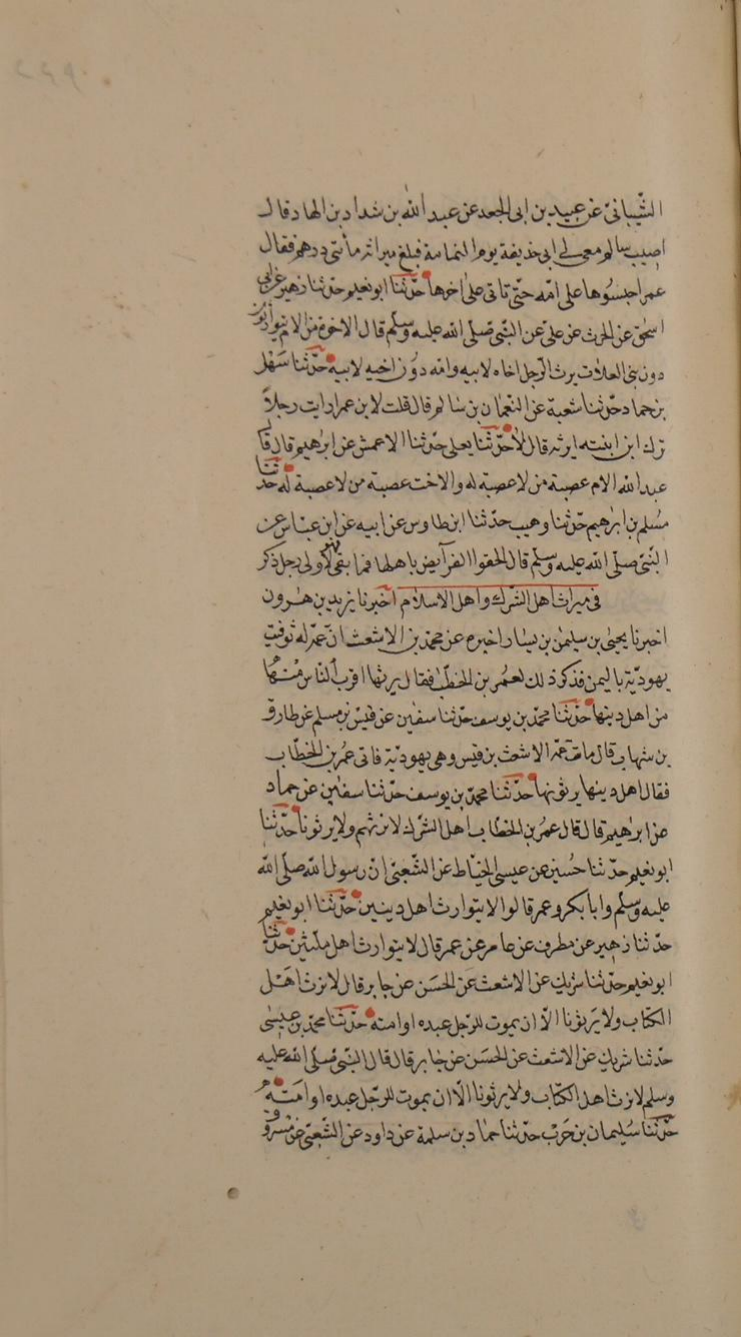 الشيباني عن عبيد بن ابى الجعد عن عبد الله بن شداد بن الهاد قال
اصيب سالم مولى ابى حذيفة يوم اليمامة فبلغ ميراثه مأتى درهم فقال
عمر احبسوها على امه حتى تاتى على اخرها حدثنا ابو نعيم حدثنا زهير عن ابى
اسحق عن الحرث عن على عن النبى صلى الله عليه وسلم قال الاخوة من الام يتوارثون
دون بنى العلات يرث الرجل اخاه لابيه وامه دون اخيه لابيه حدثنا سهل
بن حماد حدثنا شعبة عن النعمان بن سالم قال قلت لابن عمر ارايت رجلاً
ترك ابن ابنته ايرثه قال لا حدثنا يعلى حدثنا الاعمش عن ابرهيم قال قال
عبد الله الام عصبة من لا عصبة له والاخت عصبة من لا عصبة له حدثنا
مسلم بن ابرهيم حدثنا وهيب حدثنا ابن طاوس عن ابيه عن ابن عباس عن
النبى صلى الله عليه وسلم قال الحقوا الفرآيض باهلها فما بقى فهو لاولى رجل ذكر
فى ميراث اهل الشرك واهل الاسلام اخبرنا يزيد بن هرون
اخبرنا يحيى بن سليمن بن يسار اخبره عن محمد بن الاشعث ان عمة له توفيت
يهودية باليمن فذكر ذلك لعمر بن الخطب فقال يرثها اقرب الناس منها
من اهل دينها حدثنا محمد بن يوسف حدثنا سفين عن قيس بن مسلم عن طارق
بن شهاب قال ماتت عمة الاشعث بن قيس وهى يهودية فاتى عمر بن الخطاب
فقال اهل دينها يرثونها حدثنا محمد بن يوسف حدثنا سفين عن حماد
عن ابرهيم قال قال عمر بن الخطاب اهل الشرك لا نرثهم ولا يرثونا حدثنا
ابو نعيم حدثنا حسين عن عيسى الخياط عن الشعبى ان رسول الله صلى الله
عليه وسلم وابا بكر وعمر قالوا لا يتوارث اهل دينين حدثنا ابو نعيم
حدثنا زهير عن مطرف عن عامر عن عمر قال لا يتوارث اهل ملتين حدثنا
ابو نعيم حدثنا شريك عن الاشعث عن الحسن عن جابر قال لا نرث اهل
الكتاب ولا يرثونا الا ان يموت للرجل عبده او امته حدثنا محمد بن عيسى
حدثنا شريك عن الاشعث عن الحسن عن جابر قال قال النبى صلى الله عليه
وسلم لا نرث اهل الكتاب ولا يرثونا الا ان يموت للرجل عبده او امته
حدثنا سليمان بن حرب حدثنا حماد بن سلمة عن داود عن الشعبى عن مسروق